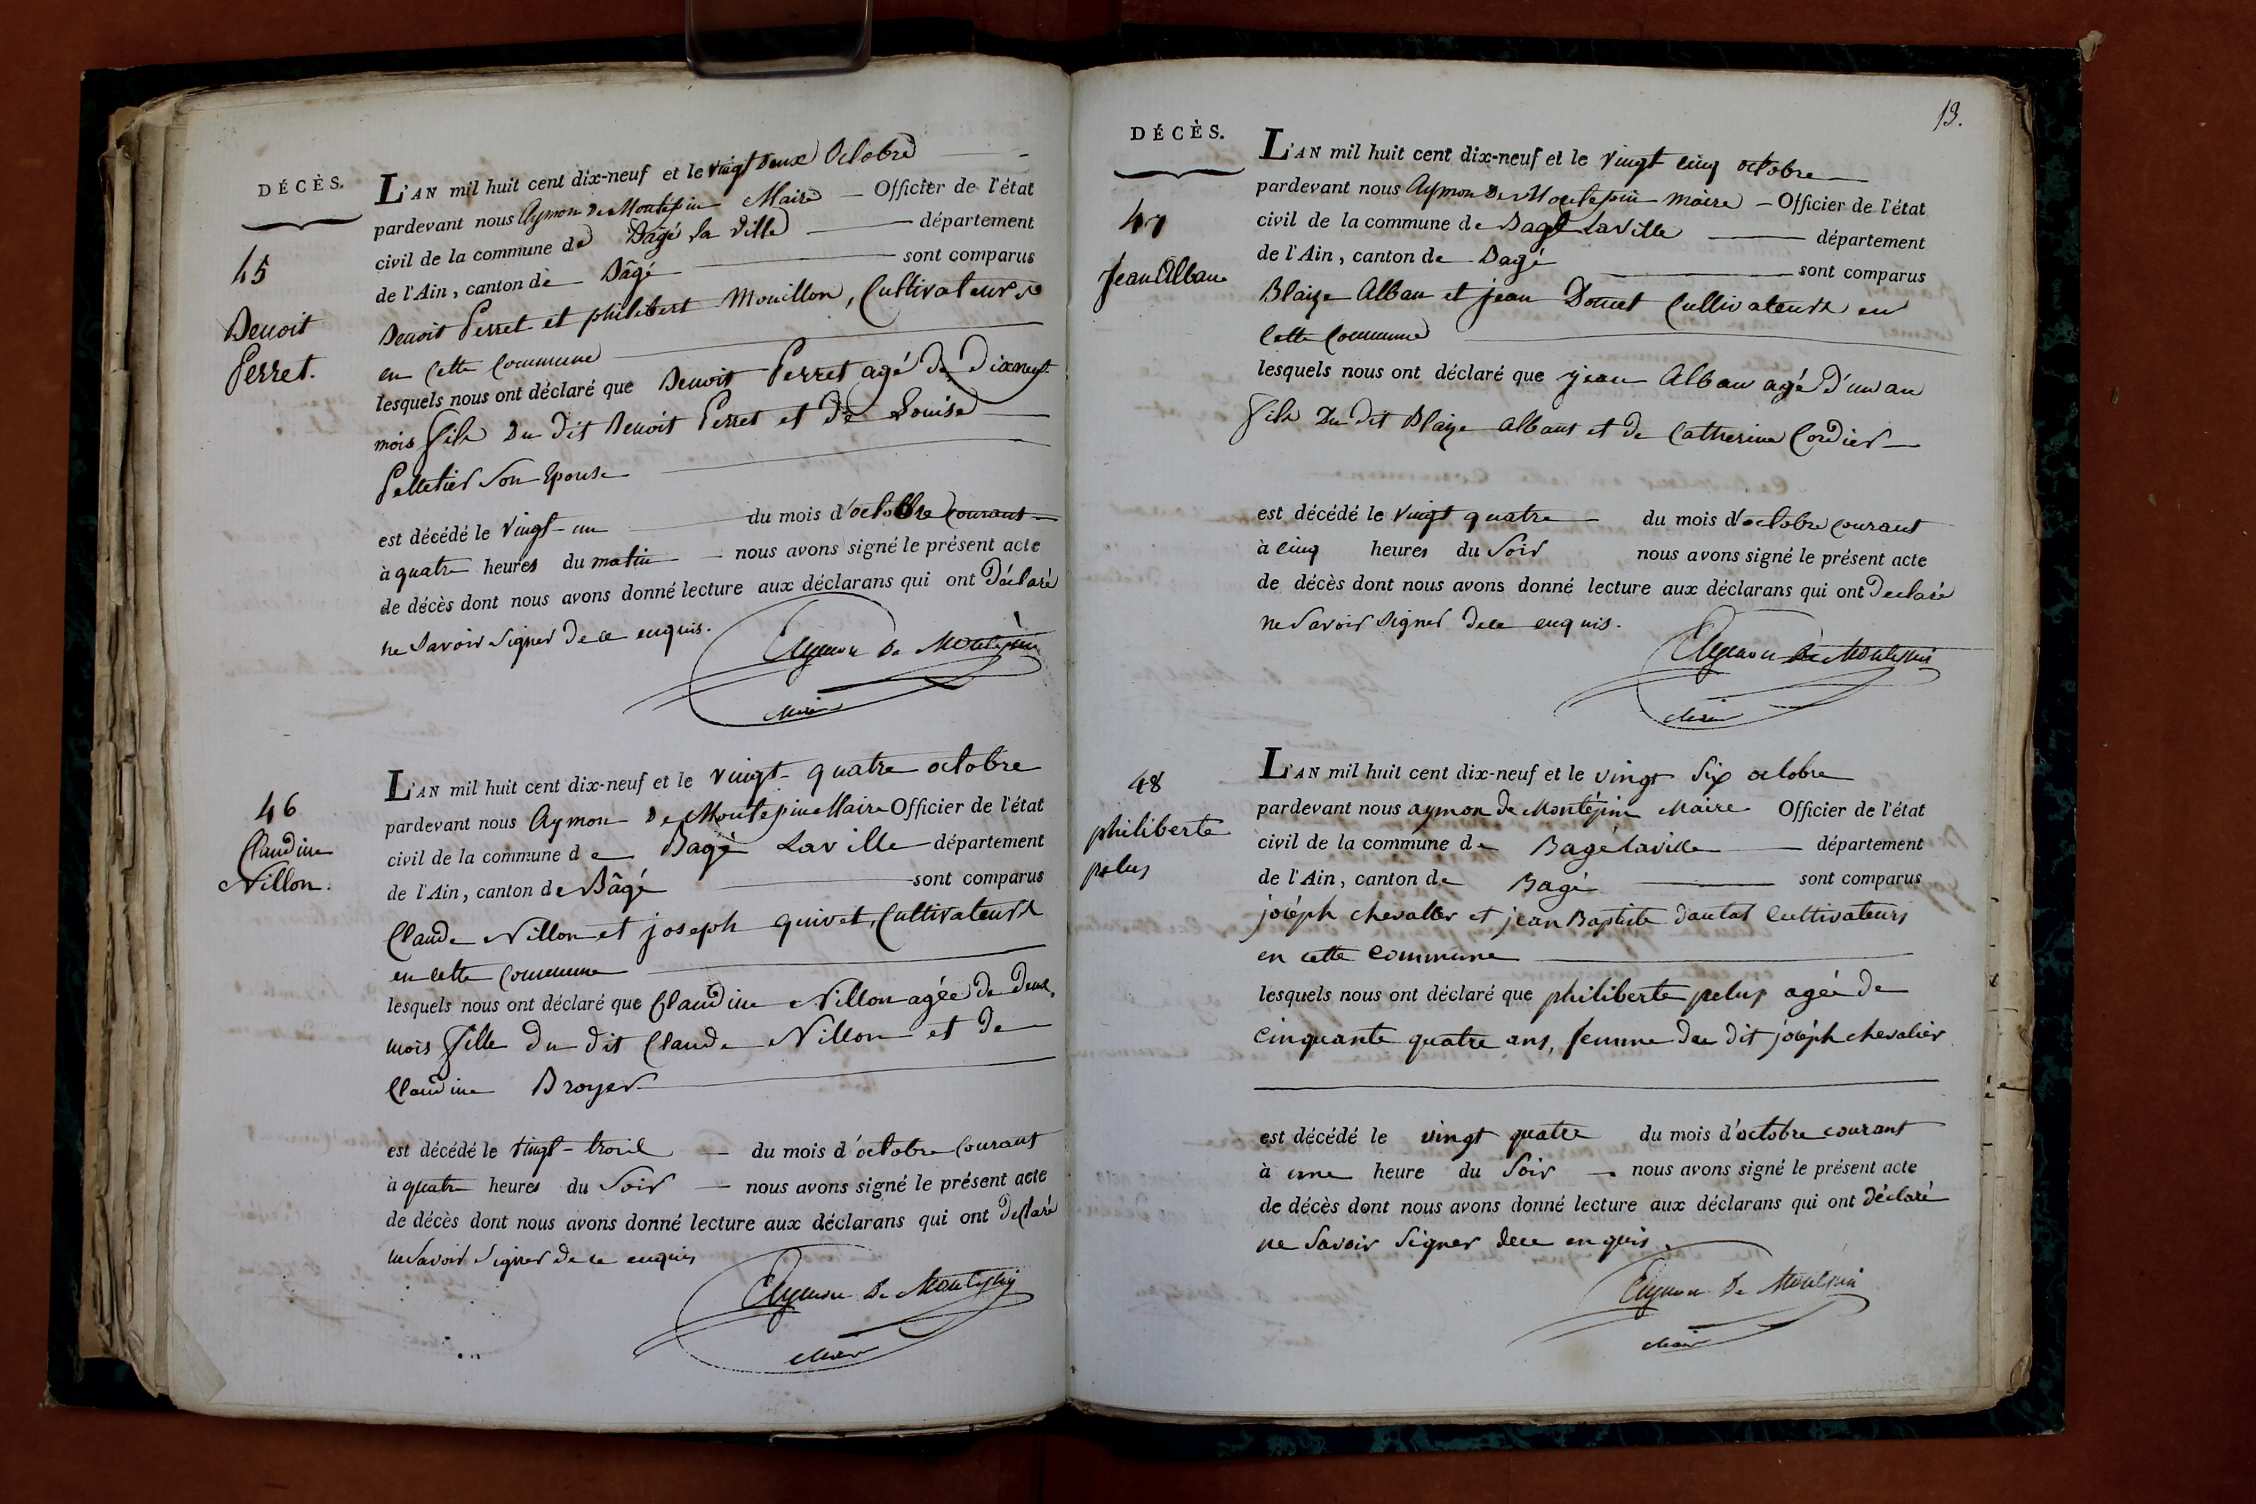 DÉCÈS.
45
Benoit
Perret.
L'AN mil huit cent dix-neuf et le vingt deux Octobre
pardevant nous Aymon De Montépin Maire Officier de l'état
civil de la commune de Bagé la ville département
de l'Ain, canton de Bâgé sont comparus
Benoit Perret et philibert Mouillon, Cultivateurs
en cette Commune
lesquels nous ont déclaré que Benoit Perret agé de dixneuf
mois fils du dit Benoit Perret et de Louise
Pelletier son Epouse
est décédé le vingt-un du mois d'octobre courant
à quatre heures du matin nous avons signé le présent acte
de décès dont nous avons donné lecture aux déclarans qui ont déclaré
ne savoir signer de ce enquis.
Aymon De Montépin
Maire
46
Claudine
Nillon.
L'AN mil huit cent dix-neuf et le vingt-quatre octobre
pardevant nous Aymon De Montepin Maire Officier de l'état
civil de la commune de Bagé Laville département
de l'Ain, canton de Bâgé sont comparus
Claude Nillon et joseph quivet, Cultivateurs
en cette commune
lesquels nous ont déclaré que Claudine Nillon agée de deux
mois fille du dit Claude Nillon et de
Claudine Broyer
est décédé le vingt-trois du mois d'octobre courant
à quatre heures du Soir nous avons signé le présent acte
de décès dont nous avons donné lecture aux déclarans qui ont déclaré
ne savoir signer de ce enquis
Aymon De Montépin
Maire
13.
DÉCÈS.
47
Jean Alban
L'AN mil huit cent dix-neuf et le vingt cinq octobre
pardevant nous Aymon De Montepin maire Officier de l'état
civil de la commune de Bagé Laville département
de l'Ain, canton de Bagé sont comparus
Blaize Alban et jean Domet Cultivateurs en
cette Commune
lesquels nous ont déclaré que jean Alban agé d'un an
fils Du dit Blaize albant et de Catherine Cordier
est décédé le vingt quatre du mois d'octobre courant
à cinq heures du Soir nous avons signé le présent acte
de décès dont nous avons donné lecture aux déclarans qui ont declaré
ne savoir signer dece enquis.
Aymon De Montepin
Maire
48
philiberte
pelus
L'AN mil huit cent dix-neuf et le vingt six octobre
pardevant nous aymon de Montépin Maire Officier de l'état
civil de la commune de Bagé laville département
de l'Ain, canton de Bagé sont comparus
joseph chevalier et jean Baptiste dautat Cultivateurs
en cette commune
lesquels nous ont déclaré que philiberte pelus agée de
cinquante quatre ans, femme du dit joseph chevalier
est décédé le vingt quatre du mois d'octobre courant
à une heure du Soir nous avons signé le présent acte
de décès dont nous avons donné lecture aux déclarans qui ont déclaré
ne savoir signer dece enquis.
Aymon De Montepin
Maire